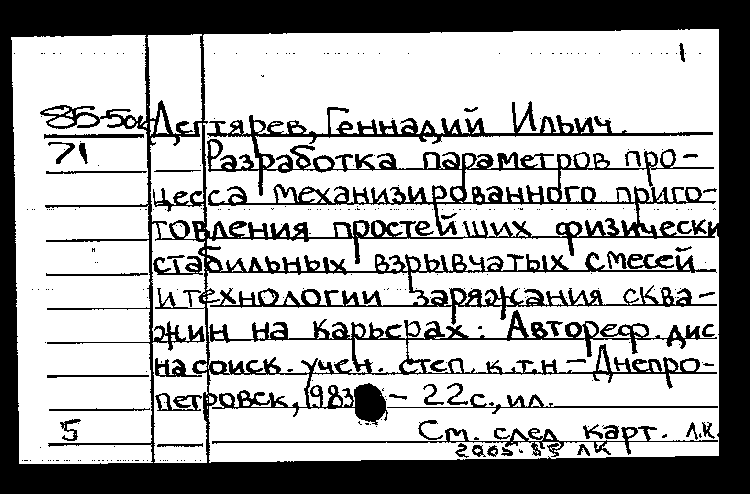 1
Дегтярев, Геннадий Ильич.
71
Разработка параметров про-
цесса механизированного приго-
товления простейших физически
стабильных взрывчатых смесей
и технологии заряжания сква-
жин на карьерах: Автореф. дис
на соиск. учен. степ. к.т.н - Днепро-
петровск, 1983 - 22с., ил.
5
См. след карт. Л.К.
ЛК